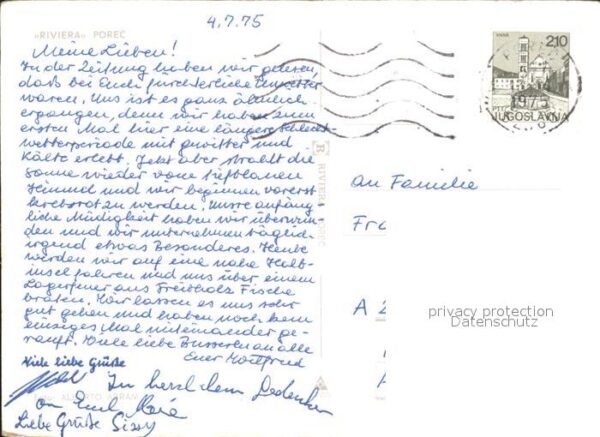 4.7.75
»RIVIERA« POREČ
Meine Lieben!
In der Zeitung haben wir gelesen,
daß bei Euch fürchterliche Unwetter
waren. Uns ist es ganz ähnlich
ergangen, denn wir haben zum
ersten Mal hier eine längere Schlecht-
wetterperiode mit Gewitter und
Kälte erlebt. Jetzt aber strahlt die
Sonne wieder vom tiefblauen
Himmel und wir beginnen vorerst
krebsrot zu werden. Unsre anfäng-
liche Müdigkeit haben wir überwun-
den und wir unternehmen täglich
irgend etwas Besonderes. Heute
werden wir auf eine nahe Halb-
insel fahren und uns über einem
Lagerfeuer aus Treibholz Fische
braten. Wir lassen es uns sehr
gut gehen und haben noch kein
einziges Mal miteinander ge-
rauft. Viele liebe Busserln an alle
Euer
Viele liebe Grüße
In herzlichem Gedenken
Liebe Grüße Sissy
FOTO: ALBERTO
RIVIERA POREČ
2,10
PTT
JUGOSLAVIJA
An Familie
Fra
A 2
A
privacy protection
Datenschutz